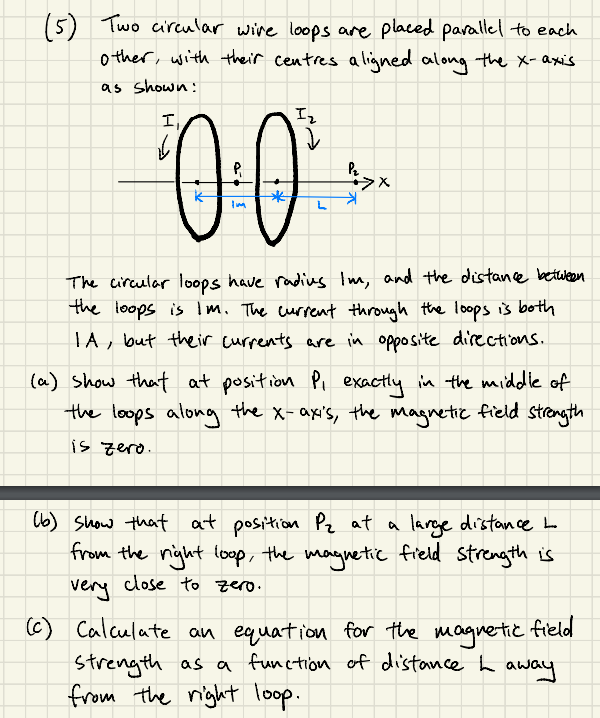 (5) Two circular wire loops are placed parallel to each
other, with their centres aligned along the x-axis
as shown:
I₁ I₂
P₁ P₂ x
1m L
The circular loops have radius 1m, and the distance between
the loops is 1m. The current through the loops is both
1A, but their currents are in opposite directions.
(a) Show that at position P₁ exactly in the middle of
the loops along the x-axis, the magnetic field strength
is zero.
(b) Show that at position P₂ at a large distance L
from the right loop, the magnetic field strength is
very close to zero.
(c) Calculate an equation for the magnetic field
strength as a function of distance L away
from the right loop.